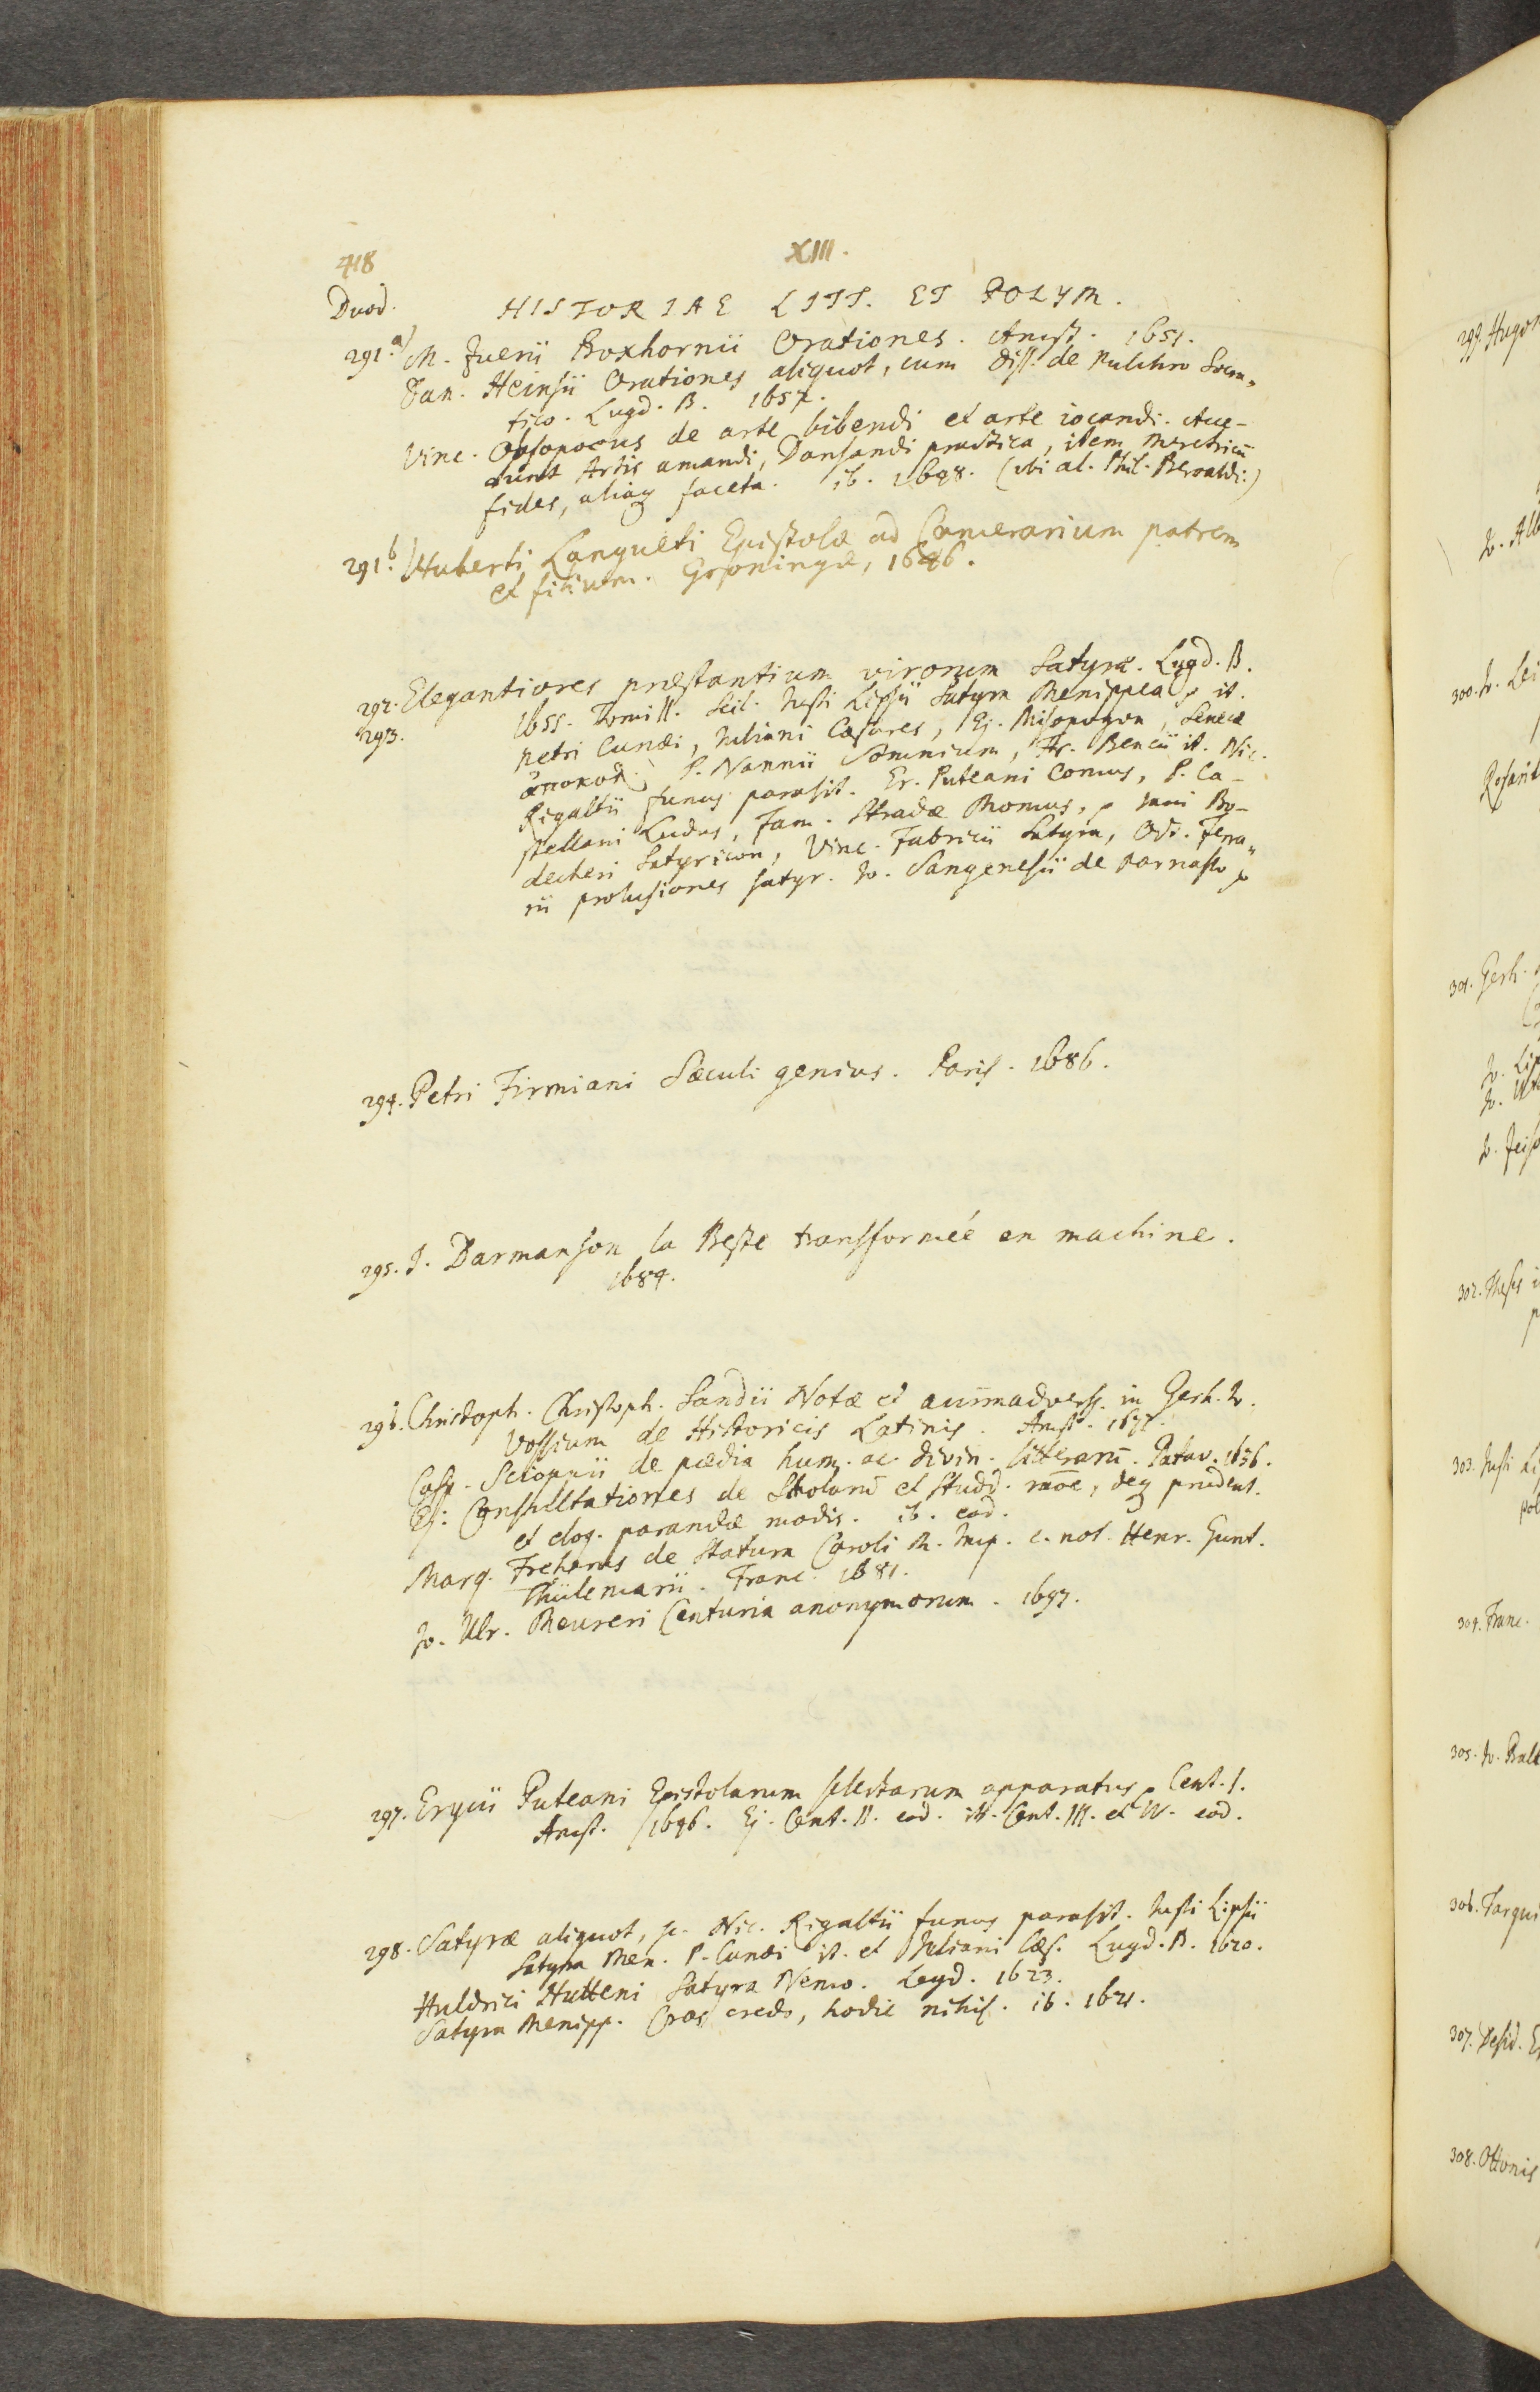 418
XIII.
Duod. HISTORIAE LITT. ET POLYM.
291.a) M. Zuerii Boxhornii Orationes. Amst. 1651.
Dan. Heinsii Orationes aliquot, cum diss. de pulchro Socra„
tico. Lugd. B. 1657.
Vinc. Obsopoeus de arte bibendi et arte iocandi. Acce-
dunt Artis amandi, Dansandi practica, item Meretricū
fides, aliaq faceta. ib. 1648. (ubi al. Phil. Beroaldi.)
291.b) Huberti Langueti Epistolæ ad Camerarium patrem
et filium. Groningæ, 1646.
292. Elegantiores præstantium virorum Satyræ. Lugd. B.
293. 1655. Tom. II. scil. Justi Lipsii Satyra Menippea it.
Petri Cunæi, Juliani Cæsares, Ej. Misopogon, Senecæ
ἀποκολ. P. Nannii Somnium, Fr. Bencii it. Nic.
Rigaltii funus parasit. Er. Puteani Comus, P. Ca-
stellani Ludus, Fam. Stradæ Momus, Jani Bo-
decheri Satyricon, Vinc. Fabricii Satyra, Oct. Ferra„
rii prolusiones satyr. Jo. Sangenesii de Parnasso
294. Petri Firmiani Sæculi genius. Paris. 1686.
295. J. Darmanson la Beste transformée en machine.
1684.
296. Christoph. Christoph. Sandii Notæ et animadverss. in Gerh. Jo.
Vossium de Historicis Latinis. Amst.
Casp. Scioppii de pædia hum. ac divin. litterarū. Patav. 1636.
Ej. Consultationes de Scholarū et studd. rãoe, deq prudent.
et eloq. parandæ modis. ib. eod.
Marq. Freherus de Statura Caroli M. Imp. c. not. Henr. Gunt.
Thülemarii. Franc. 1681.
Jo. Ulr. Meureri Centuria anonymorum. 1697.
297. Erycii Puteani Epistolarum selectarum apparatus Cent. I.
Amst. 1646. Ej. Cent. II. eod. it. Cent. III. et IV. eod.
298. Satyræ aliquot, sc. Nic. Rigaltii funus parasit. Justi Lipsii
Satyra Men. P. Cunæi it. et Juliani Cæs. Lugd. B. 1620.
Huldrici Hutteni Satyra Nemo. Lugd. 1623.
Satyra Menipp. Cras credo, hodie nihil. ib. 1621.
299. Hugon
300. J. Lei
301. Gerh.
302. Thesis
303. Justi Li
304. Franc.
306. Tarqui
307. Desid. E
308. Ottonis